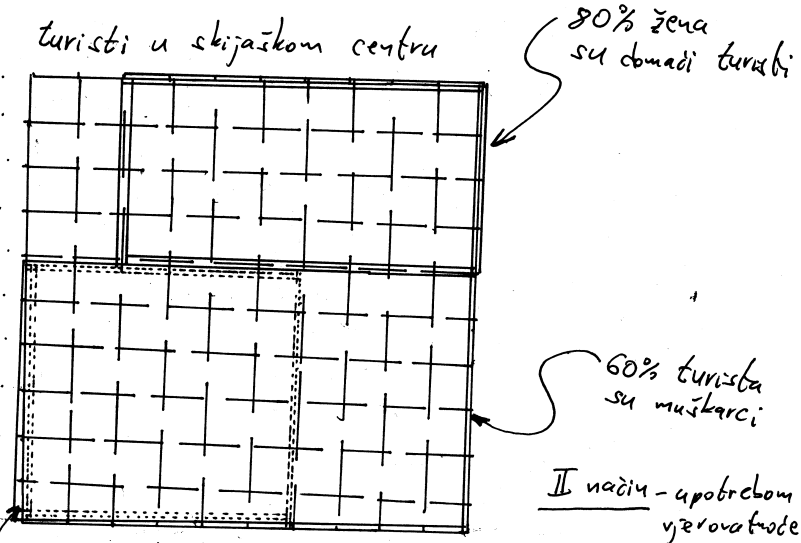 turisti u skijaškom centru
80% žena
su domaći turisti
60% turista
su muškarci
II način - upotrebom
vjerovatnoće